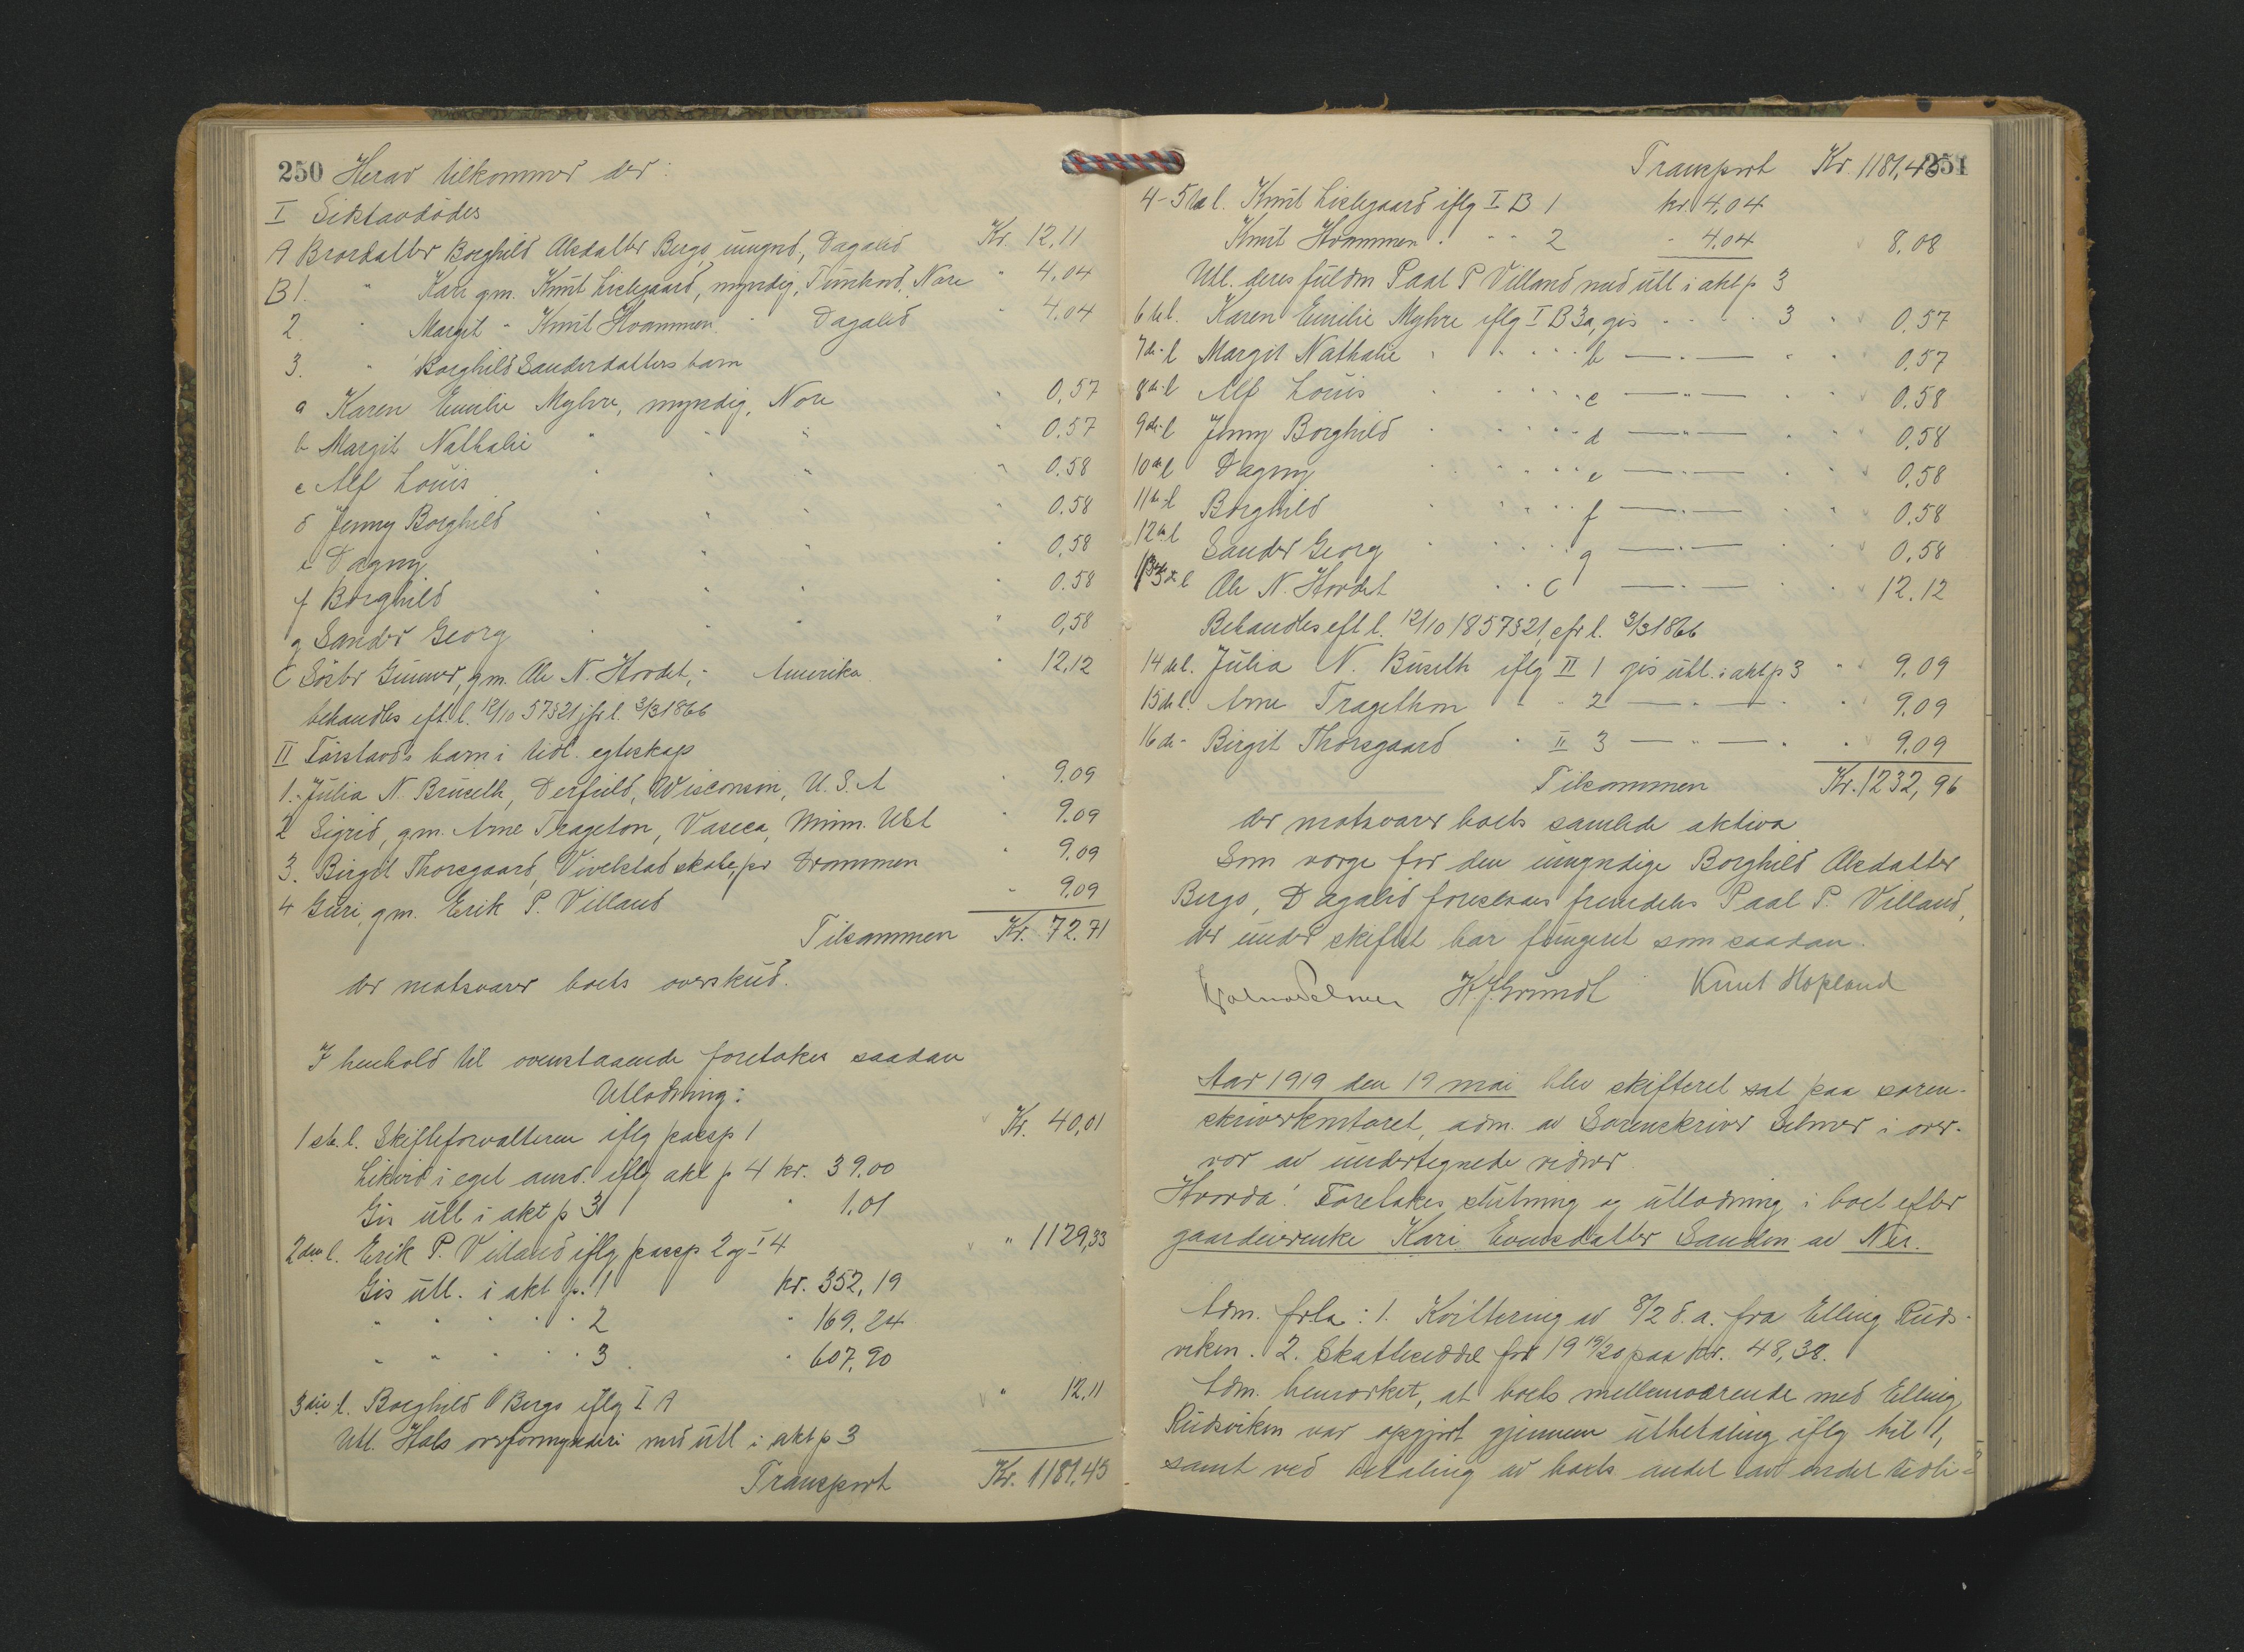 250 Herav tilkommer der:
I Sidstavdødes
A Brordatter Borghild Olesdatter Bergo, umynd., Dagalid Kr. 12,11
B 1. " Kari gm. Knut Lislegaard, myndig, Tunhovd, Nore " 4,04
2. " Margit " Knut Hvammen " Dagalid " 4,04
3. " Borghild Sandersdatters barn
a Karen Emilie Myhre, myndig, Nore " 0,57
b Margit Nathalie " " " " 0,57
c Alf Louis " " " " 0.58
d Jenny Borghild " " " " 0.58
e Dagny " " " " 0,58
f Borghild " " " " 0.58
g Sander Georg " " " " 0,58
C Søster Gunvor, gm. Ole N. Hordet, - Amerika " 12,12
behandles eft. l. 12/10 57 § 21 jfr l. 3/3 1866
II Førstavd's barn i tidl. egteskap
1. Julia N. Bruseth, Derfield, Wisconsin, U.S.A " 9.09
2 Sigrid, gm. Arne Trageton, Vaseca, Minn. USA " 9.09
3. Birgit Thorsgaard, Vivelstad skole, pr Drammen " 9,09
4 Guri, gm. Erik P. Villand " 9,09
Tilsammen Kr. 72.71
der motsvarer boets overskud.
I henhold til ovenstaaende foretokes saadan
Utlodning:
1ste l. Skifteforvalteren iflg passp 1 Kr. 40,01
Likvid i eget anvd. iflg akt p 4 kr. 39.00
Gis utl i akt p 3 " 1.01
2den l. Erik P. Villand iflg passp 2 og I 4 " 1129,33
Gis utl. i akt p. 1 kr. 352,19
" " " " " 2 " 169,24
" " " " " 3 " 607,90
3die l. Borghild O Bergo iflg I A " 12,11
Utl. Hols overformynderi med utl i akt p 3
Transport Kr. 1181,45
251
Transport Kr. 1181,45
4-5te l. Knut Lislegaard iflg I B 1 kr. 4,04
Knut Hvammen " " " 2 " 4,04 8,08
Utl. deres fuldm Paal P Villand med utl i akt p 3
6te l. Karen Emilie Myhre iflg I B 3a, gis " " " " 3 " 0,57
7de l Margit Nathalie " " " " b — " — " " 0,57
8de l Alf Louis " " " " c — " — " " 0.58
9de l Jenny Borghild " " " " d — " — " " 0,58
10de l Dagny " " " " e — " — " " 0,58
11te l Borghild " " " " f — " — " " 0.58
12te l Sander Georg " " " " g — " — " " 0.58
13de l Ole N. Hordet " " C — " — " " 12.12
Behandles eft l. 12/10 1857 § 21, cfr l. 3/3 1866
14de l. Julia N. Buseth iflg II 1 gis utl. i akt p 3 " 9.09
15de l. Arne Tragethon " " 2 — " — " " 9.09
16de - Birgit Thorsgaard " II 3 — " — " " 9,09
Tilsammen Kr. 1232,96
der motsvarer boets samlede aktiva
Som værge for den umyndige Borghild Olesdatter
Bergo, Dagalid foreslaaes fremdeles Paal P. Villand,
der under skiftet har fungeret som saadan.
K J Grundt Knut Hopland
Aar 1919 den 19 mai blev skifteret sat paa soren-
skriverkontoret, adm. av Sorenskriver Selmer i over-
vær av undertegnede vidner.
Hvorda! Foretokes slutning og utlodning i boet efter
gaardeierenke Kari Evensdatter Sanden av Nes.
Adm. frla: 1. Kvittering av 8/2 d.a. fra Elling Ruds-
viken. 2. Skatteseddel for 19 19/20 paa kr. 48,38.
Adm. bemerket, at boets mellemværende med Elling
Rudsviken var opgjort gjennem utbetaling iflg bil 1,
samt ved betaling av boets andel av endel tidli-